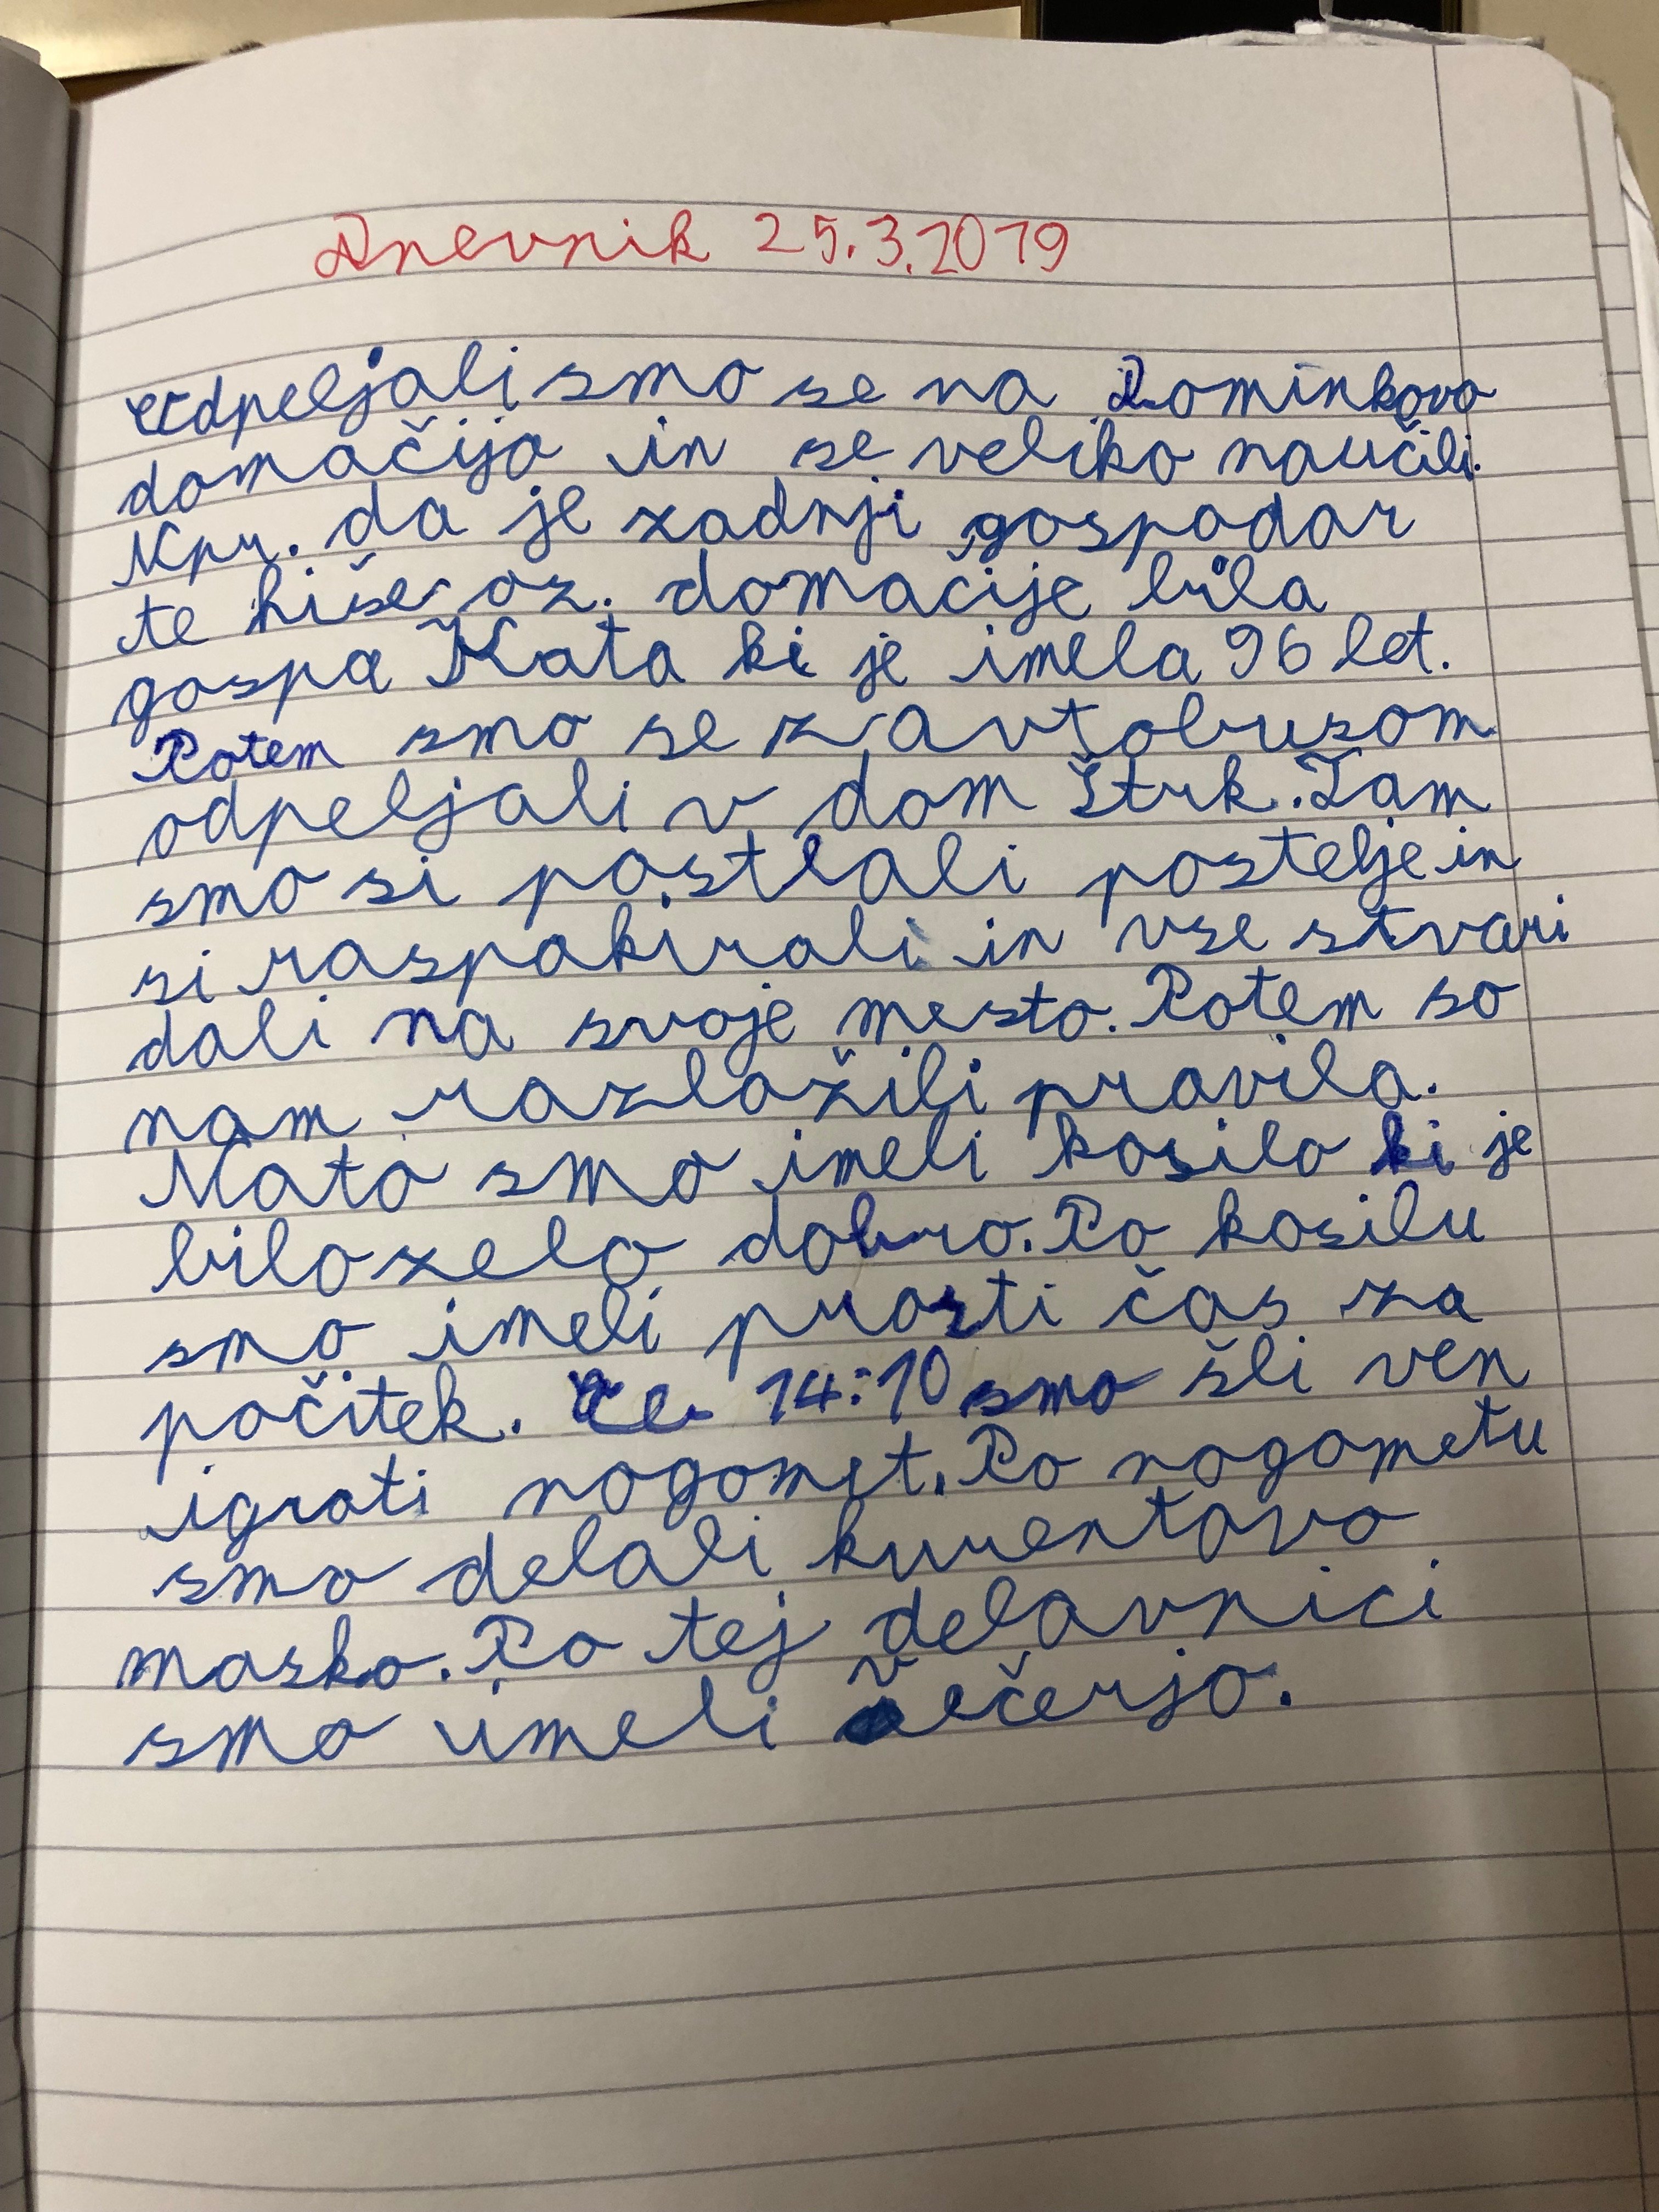 Dnevnik 25.3.2019
Odpeljali smo se na Dominkovo
domačijo in se veliko naučili.
Npr. da je zadnji gospodar
te hiše oz. domačije bila
gospa Kata ki je imela 96 let.
Potem smo se z avtobusom
odpeljali v dom Štrk. Tam
smo si postlali postelje in
si raspakirali in vse stvari
dali na svoje mesto. Potem so
nam razložili pravila.
Nato smo imeli kosilo ki je
bilo zelo dobro. Po kosilu
smo imeli prosti čas za
počitek. 14:10 smo šli ven
igrati nogomet. Po nogometu
smo delali kurentovo
masko. Po tej delavnici
smo imeli večerjo.